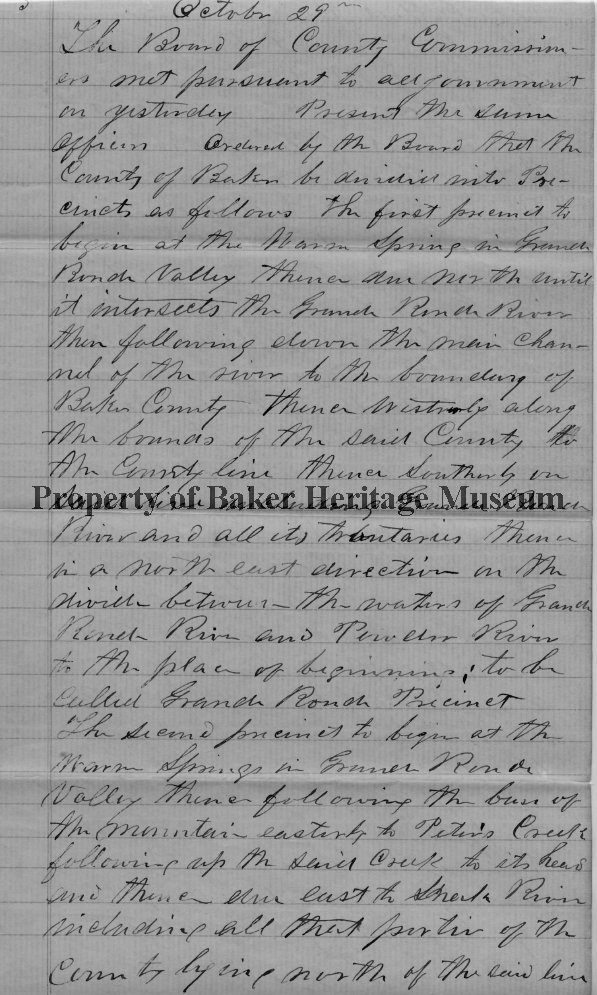 October 29th
The Board of County Commission-
ers met pursuant to adjournment
on yesterday Present the same
Officers Ordered by the Board that the
County of Baker be divided into Pre-
cincts as follows The first precinct to
begin at the Warm Spring in Grande
Ronde Valley thence due north until
it intersects the Grande Ronde River
then following down the main chan-
nel of the river to the boundary of
Baker County thence Westerly along
the bounds of the said County to
the County line thence Southerly on
Property of Baker Heritage Museum
River and all its tributaries thence
in a north east direction on the
divide between the waters of Grande
Ronde River and Powder River
to the place of beginning; to be
Called Grande Ronde Precinct
The second precinct to begin at the
Warm Springs in Grande Ronde
Valley thence following the base of
the mountain easterly to Peters Creek
following up the said Creek to its head
and thence due east to Snake River
including all that portion of the
County lying north of the said line